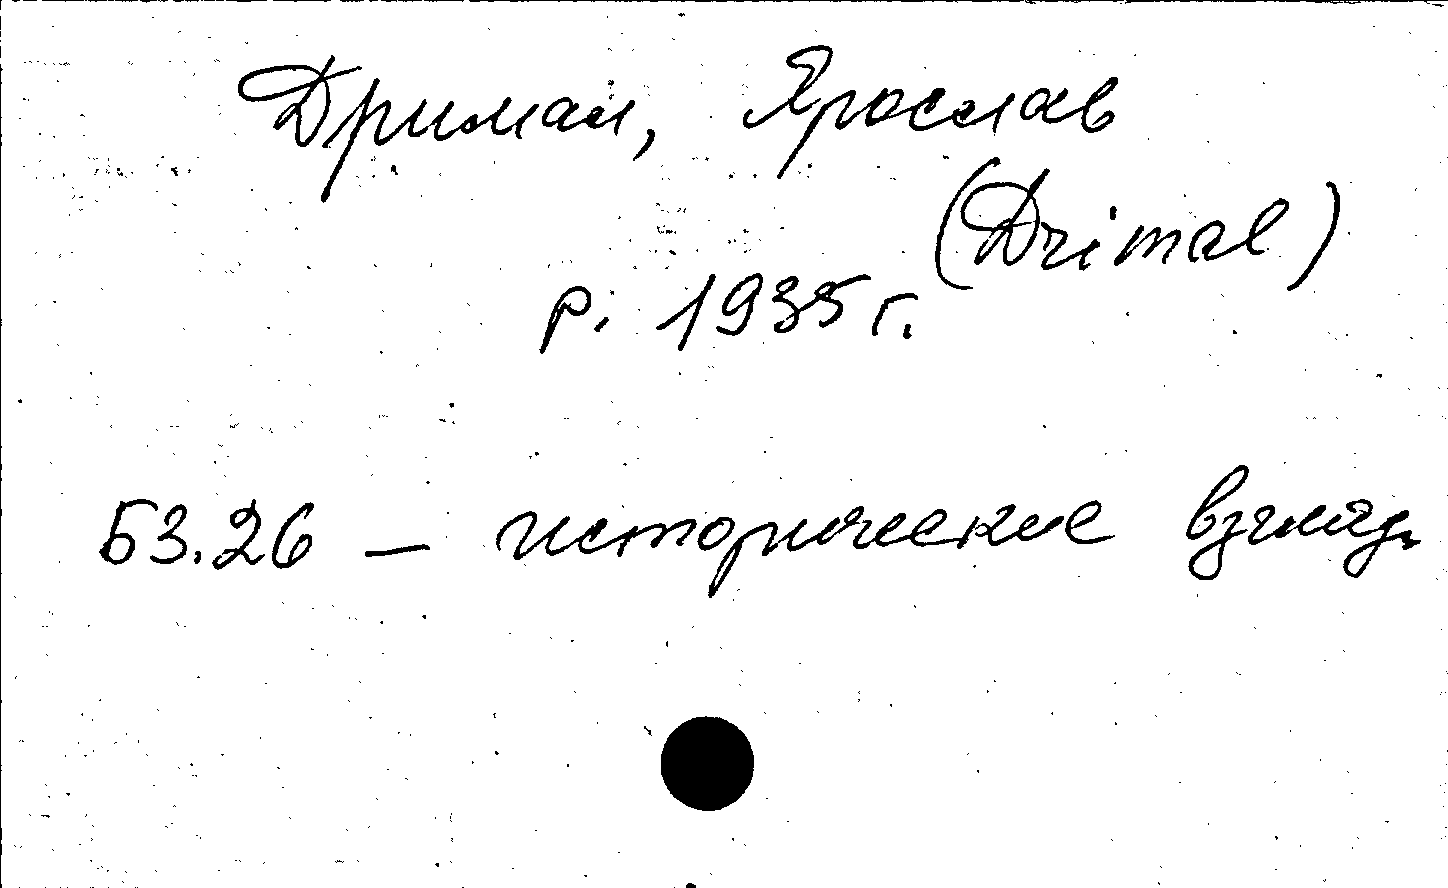 Дримал, Ярослав
(Drimal)
р. 1935 г.
Б3.26 — исторические взгляд.